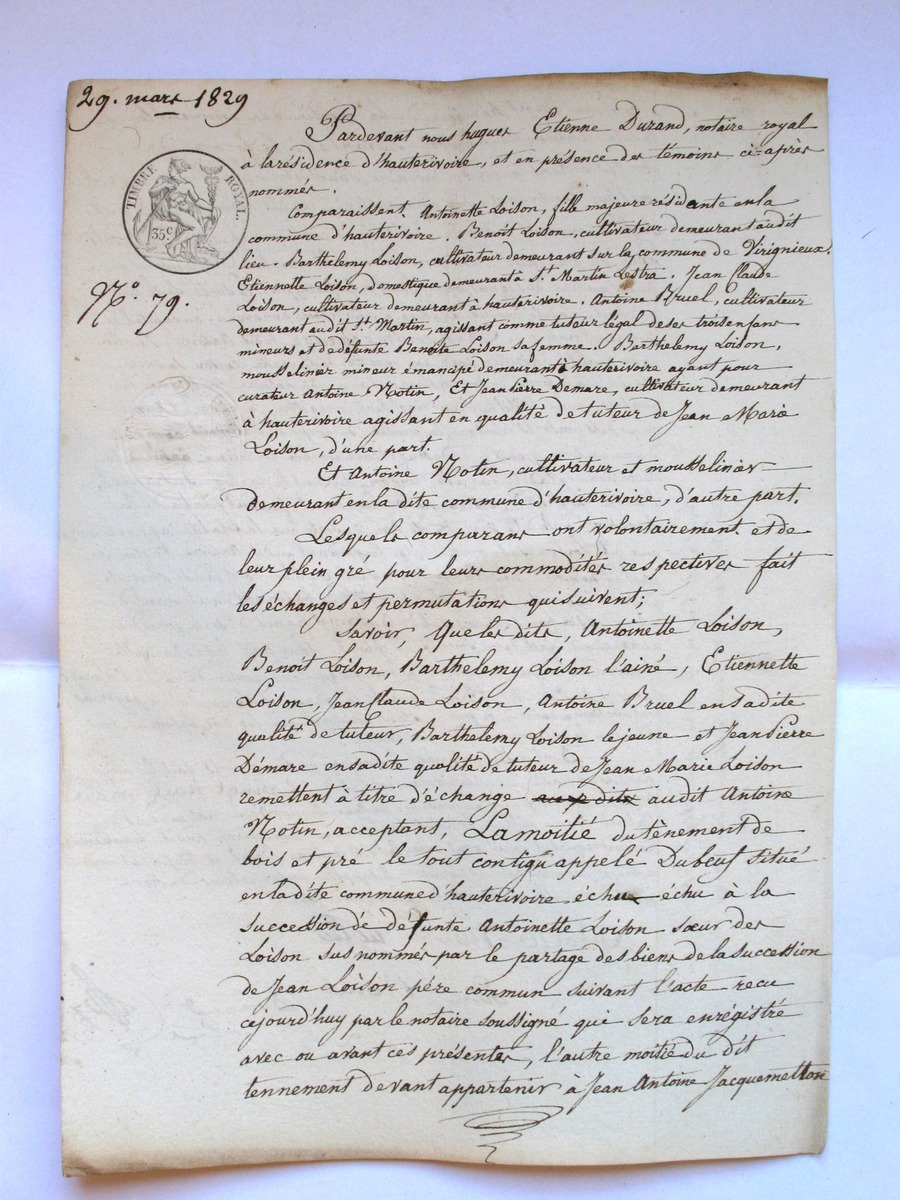 29. mars 1829
Pardevant nous hugues Etienne Durand, notaire royal
à la résidence d'hauterivoire, et en présence des témoins ci-après
nommés.
TIMBRE ROYAL.
35c
No. 79.
Comparaissent. Antoinette Loison, fille majeure résidante en la
commune d'hauterivoire. Benoit Loison, cultivateur demeurant audit
lieu. Barthelemy Loison, cultivateur demeurant sur la commune de Virignieux.
Etiennette Loison, domestique demeurant à St. Martin Lestra. Jean Claude
Loison, cultivateur demeurant à hauterivoire. Antoine Bruel, cultivateur
demeurant audit St. Martin, agissant comme tuteur légal de ses trois enfans
mineurs et de défunte Benoite Loison sa femme. Barthelemy Loison,
mousselinier mineur émancipé demeurant à hauterivoire ayant pour
curateur Antoine Notin, Et Jean Pierre Demare, cultivateur demeurant
à hauterivoire agissant en qualité de tuteur de Jean Marie
Loison, d'une part.
Et Antoine Notin, cultivateur et mousselinier
demeurant en la dite commune d'hauterivoire, d'autre part.
Lesquels comparans ont volontairement et de
leur plein gré pour leurs commodités respectives fait
les échanges et permutations qui suivent;
Savoir, Que les dits, Antoinette Loison,
Benoit Loison, Barthelemy Loison l'ainé, Etiennette
Loison, Jean Claude Loison, Antoine Bruel en sa dite
qualité de tuteur, Barthelemy Loison le jeune et Jean Pierre
Démare en sa dite qualité de tuteur de Jean Marie Loison
remettent à titre d'échange aux dits audit Antoine
Notin, acceptant, La moitié du tènement de
bois et pré le tout contigu appelé Dubeuf situé
en la dite commune d'hauterivoire échu échu à la
succession de défunte Antoinette Loison sœur des
Loison sus nommés par le partage des biens de la succession
de Jean Loison pére commun suivant l'acte recu
cejourd'huy par le notaire soussigné qui sera enrégistré
avec ou avant ces présentes, l'autre moitié du dit
tennement devant appartenir à Jean Antoine Jacquemetton